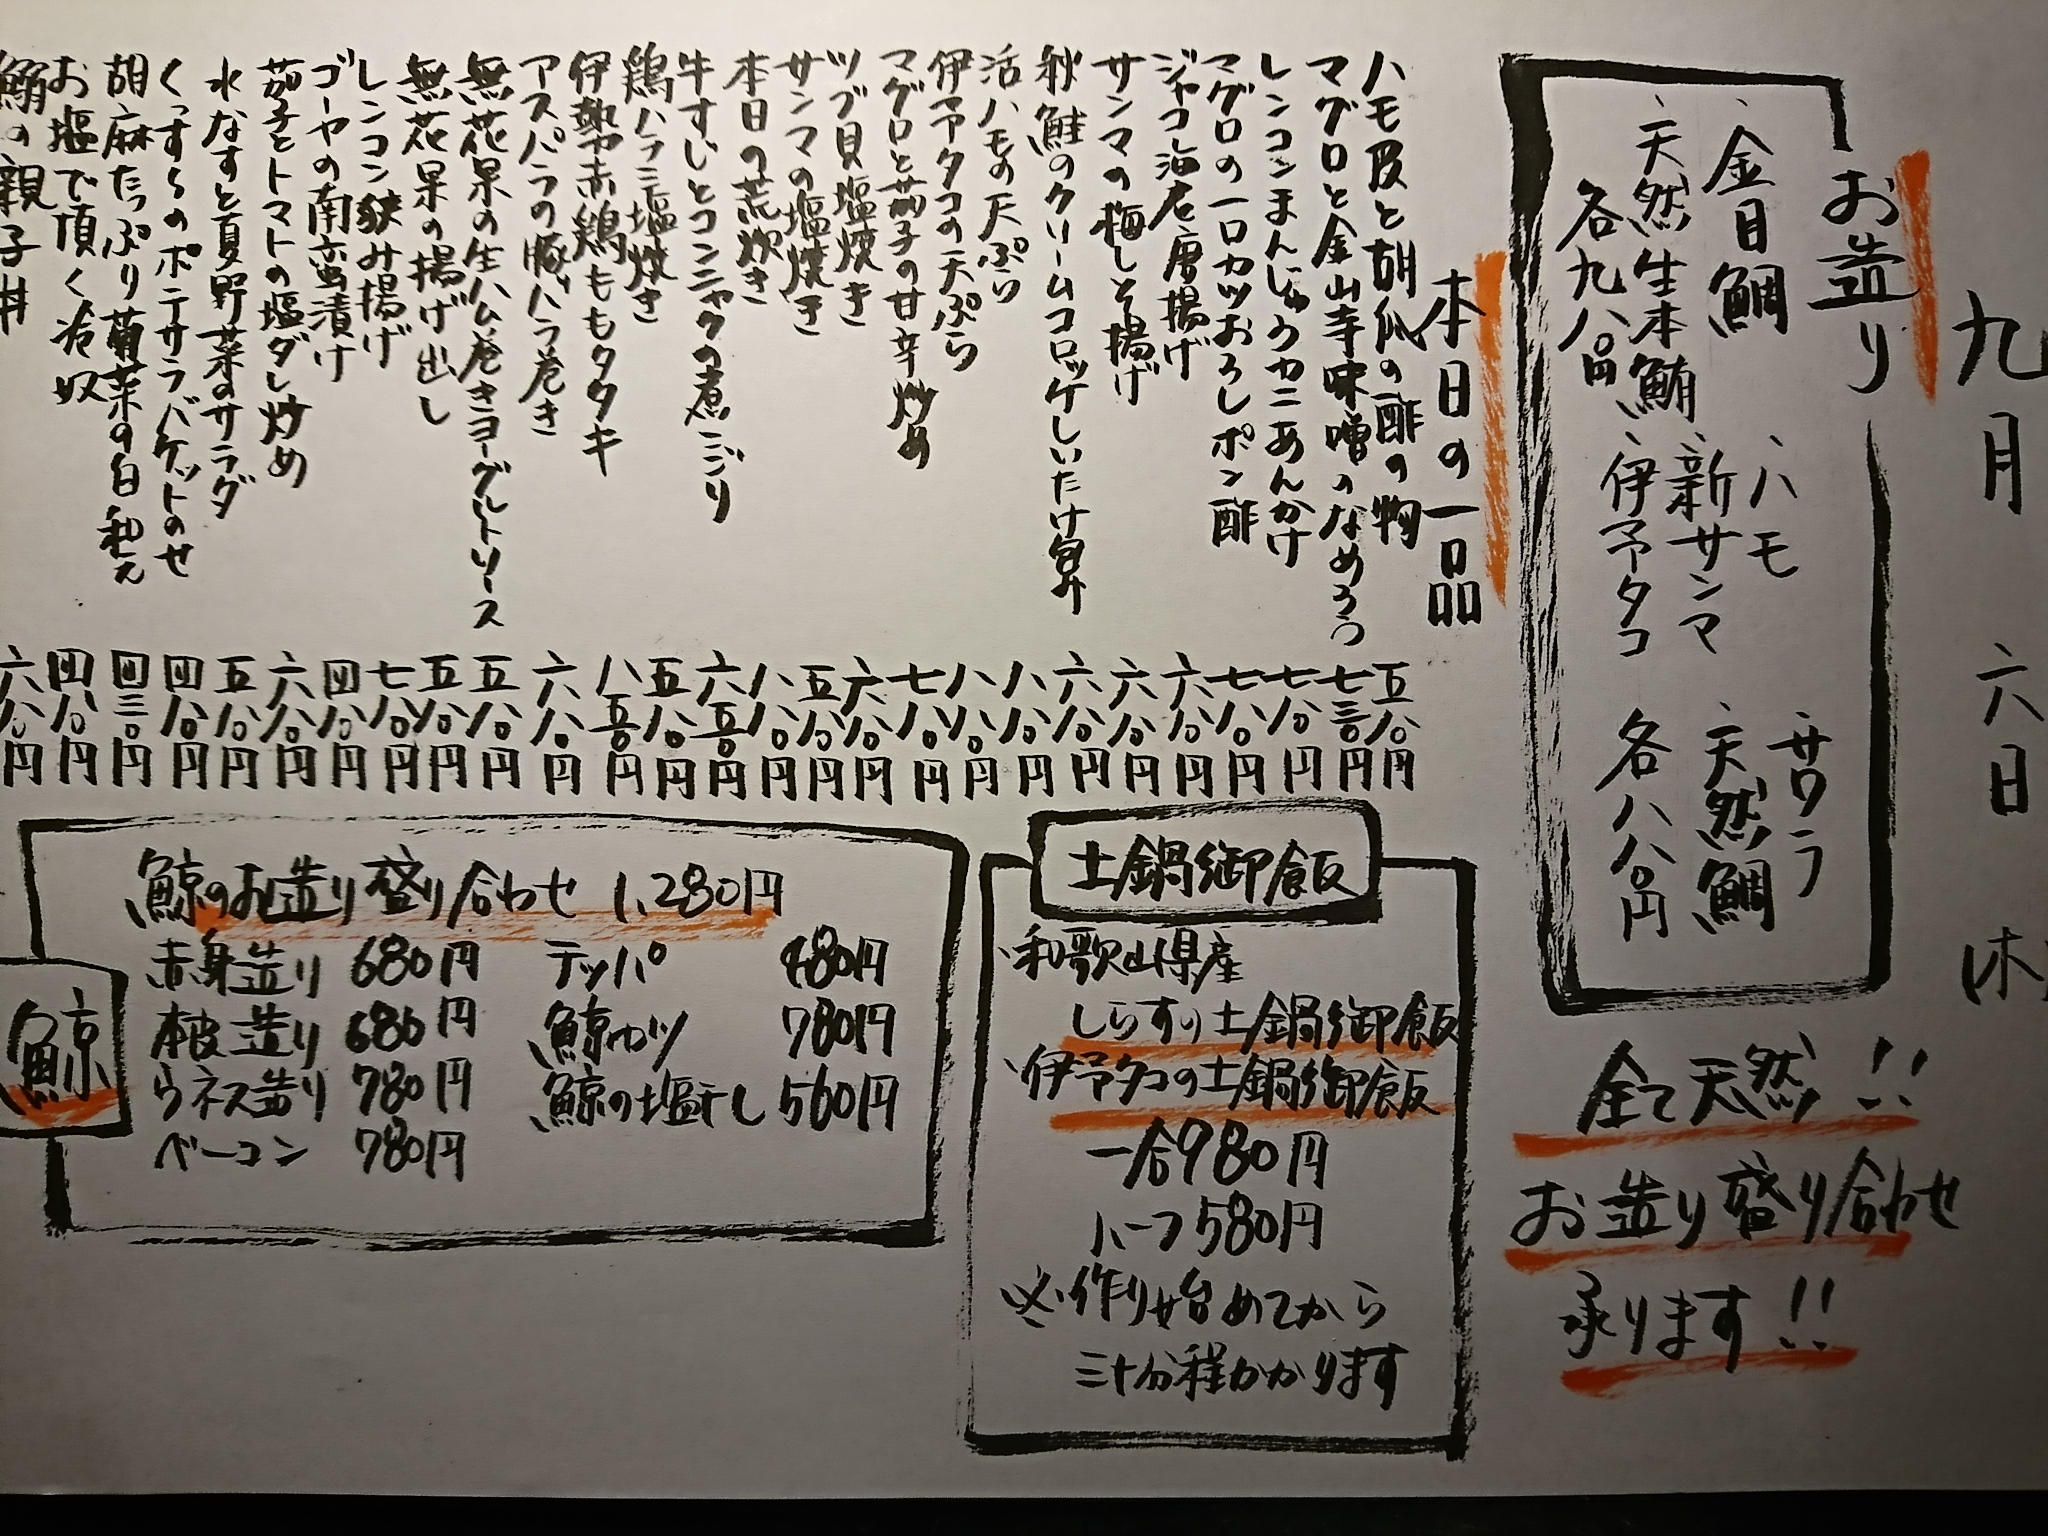 九月 六日 木
お造り
、金目鯛
、天然生本鮪
各九八〇円
、ハモ
、新サンマ
、伊予タコ
、サワラ
、天然鯛
各八八〇円
全て天然!!
お造り盛り合わせ
承ります!!
本日の一品
ハモ皮と胡瓜の酢の物 五八〇円
マグロと金山寺味噌のなめろう 七三〇円
レンコンまんじゅうカニあんかけ 七八〇円
マグロの一口カツおろしポン酢 七八〇円
ジャコ海老唐揚げ 六八〇円
サンマの梅しそ揚げ 六八〇円
秋鮭のクリームコロッケしいたけ包み 六八〇円
活ハモの天ぷら 八八〇円
伊予タコの天ぷら 八八〇円
マグロと茄子の甘辛炒め 七八〇円
ツブ貝塩焼き 六八〇円
サンマの塩焼き 五八〇円
本日の荒炊き 八八〇円
牛すじとコンニャクの煮こごり 六五〇円
鶏ハラミ塩焼き 五八〇円
伊勢赤鶏ももタタキ 八五〇円
アスパラの豚バラ巻き 六八〇円
無花果の生ハム巻きヨーグルトソース 五八〇円
無花果の揚げ出し 五八〇円
レンコン挟み揚げ 七八〇円
ゴーヤの南蛮漬け 四八〇円
茄子とトマトの塩ダレ炒め 六八〇円
水なすと夏野菜のサラダ 五八〇円
くっするのポテサラバケットのせ 四八〇円
胡麻たっぷり菊菜の白和え 四三〇円
お塩で頂く冷奴 四八〇円
鮪の親子丼 六八〇円
土鍋御飯
、和歌山県産
しらすの土鍋御飯
、伊予タコの土鍋御飯
一合980円
ハーフ580円
※作り始めてから
三十分程かかります
鯨
鯨のお造り盛り合わせ 1,280円
赤身造り 680円 テッパ 480円
本皮造り 680円 鯨カツ 780円
ウネス造り 780円 鯨の塩干し 560円
ベーコン 780円